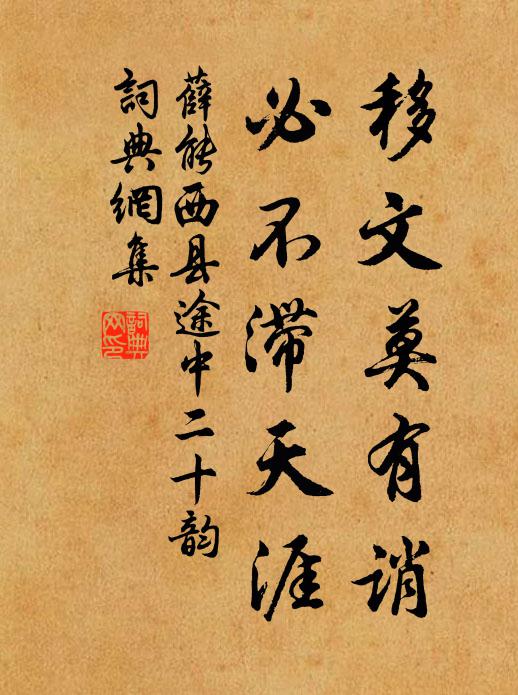 移文莫有诮
必不滞天涯
薛能西县途中二十韵
詞典網集
詞典網印